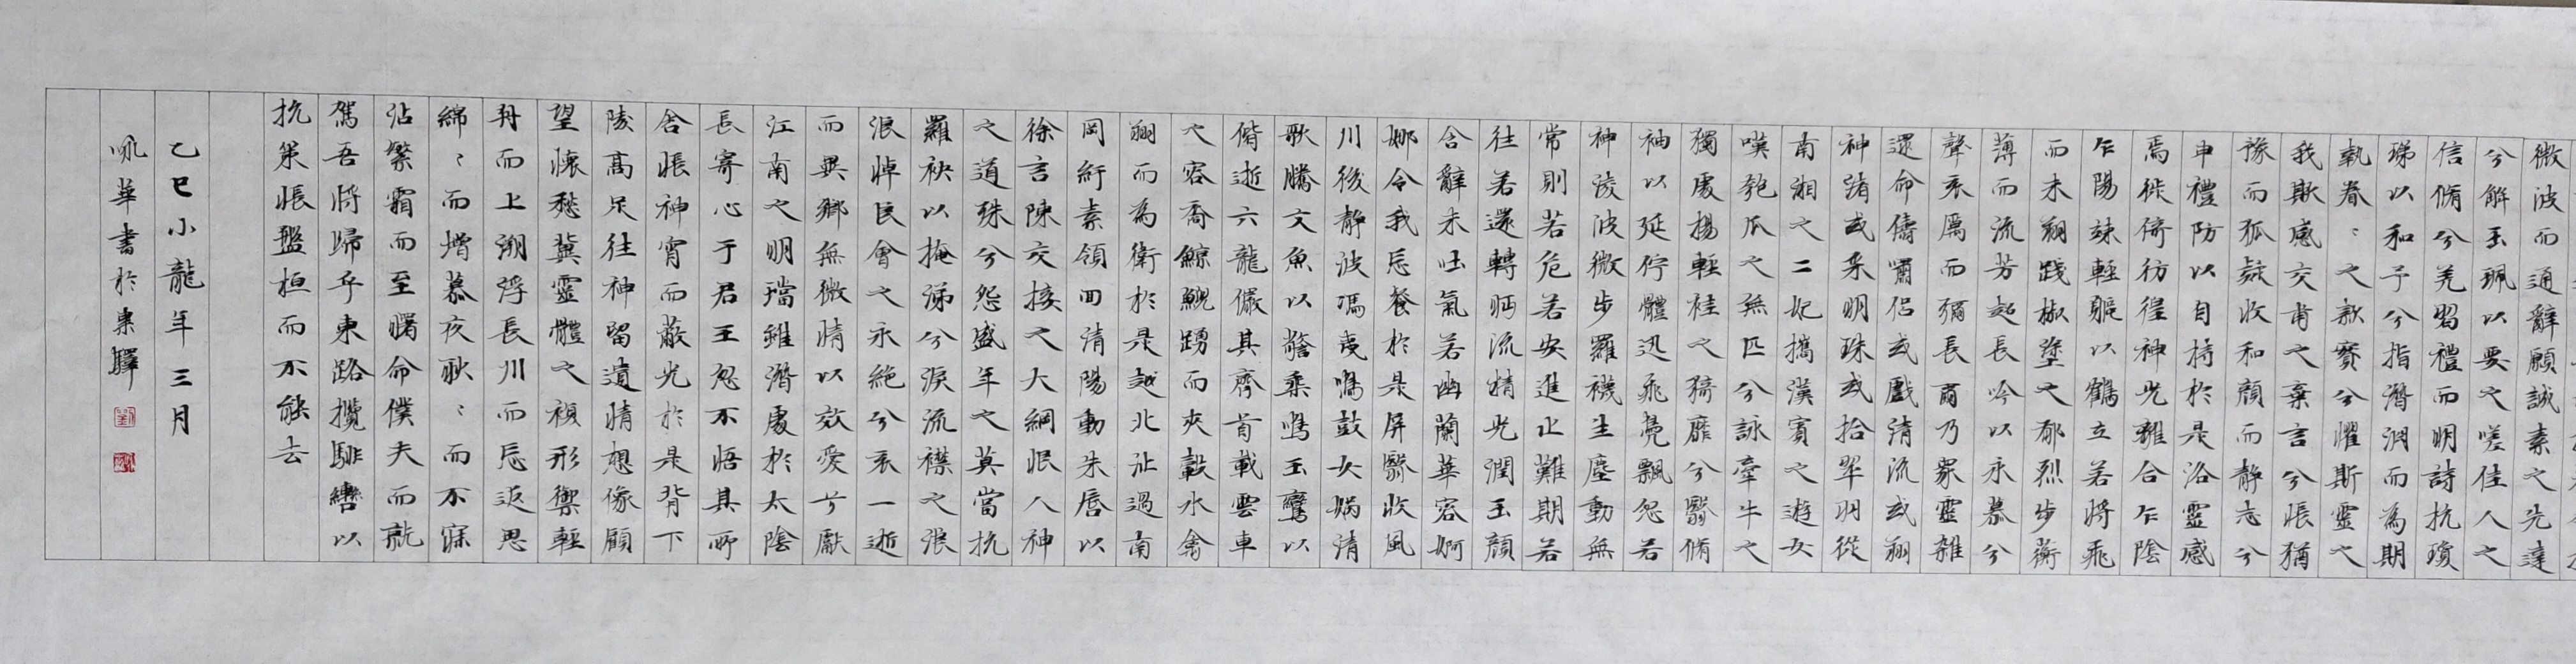 微波而通辭願誠素之先達
兮解玉珮以要之嗟佳人之
信脩兮羌習禮而明詩抗瓊
珶以和予兮指潛淵而為期
執眷〻之款實兮懼斯靈之
我欺感交甫之棄言兮悵猶
豫而狐疑收和顏而靜志兮
申禮防以自持於是洛靈感
焉徙倚彷徨神光離合乍陰
乍陽竦輕軀以鶴立若將飛
而未翔踐椒塗之郁烈步蘅
薄而流芳超長吟以永慕兮
聲哀厲而彌長爾乃眾靈雜
遝命儔嘯侶或戲清流或翔
神渚或采明珠或拾翠羽從
南湘之二妃攜漢濱之遊女
嘆匏瓜之無匹兮詠牽牛之
獨處揚輕袿之猗靡兮翳脩
袖以延佇體迅飛鳧飄忽若
神淩波微步羅襪生塵動無
常則若危若安進止難期若
往若還轉眄流精光潤玉顏
含辭未吐氣若幽蘭華容婀
娜令我忘餐於是屏翳收風
川後靜波馮夷鳴鼓女媧清
歌騰文魚以警乘鳴玉鸞以
偕逝六龍儼其齊首載雲車
之容裔鯨鯢踴而夾轂水禽
翔而為衛於是越北沚過南
岡紆素領回清陽動朱唇以
徐言陳交接之大綱恨人神
之道殊兮怨盛年之莫當抗
羅袂以掩涕兮淚流襟之浪
浪悼良會之永絕兮哀一逝
而異鄉無微情以效愛兮獻
江南之明璫雖潛處於太陰
長寄心于君王忽不悟其所
舍悵神宵而蔽光於是背下
陵高足往神留遺情想像顧
望懷愁冀靈體之複形禦輕
舟而上溯浮長川而忘返思
綿〻而增慕夜耿〻而不寐
沾繁霜而至曙命僕夫而就
駕吾將歸乎東路攬騑轡以
抗策悵盤桓而不能去
乙巳小龍年三月
華書於東驛